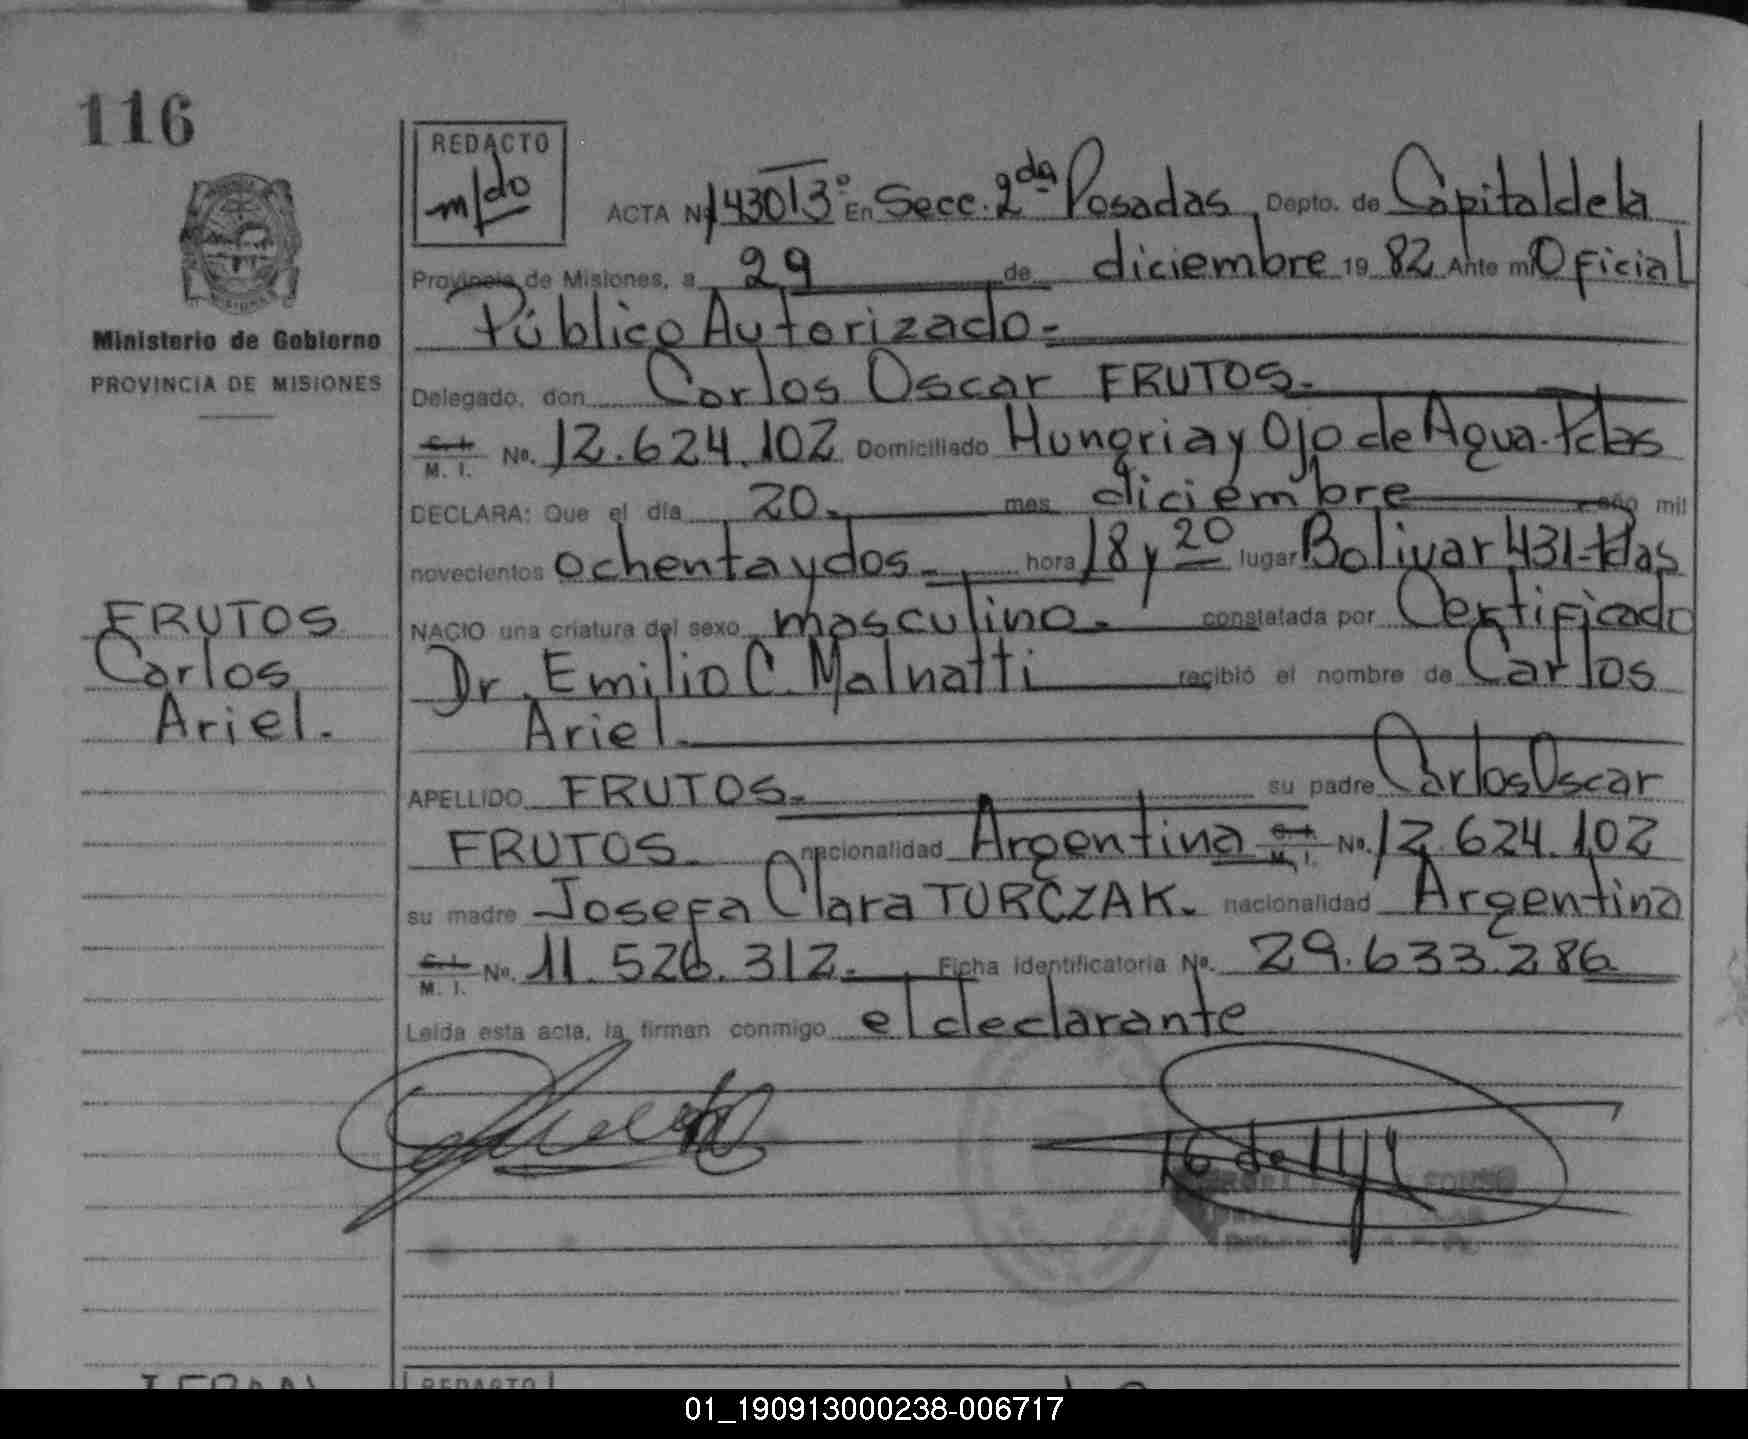 116
REDACTO
m/do
ACTA Nº 1430 I 3º En Secc. 2da Posadas, Depto. de Capital de la
Provincia de Misiones, a 29 de diciembre 19 82 Ante mi Oficial
Público Autorizado.-
Delegado, don Carlos Oscar FRUTOS.-
C. I.
M. I. No. 12.624.102 Domiciliado Hungria y Ojo de Agua. Pdas
DECLARA: Que el día 20.- mes diciembre año mil
novecientos ochenta y dos.- hora 18 y 20 lugar Bolivar 431-Pdas
NACIO una criatura del sexo masculino.- constatada por Certificado
Dr. Emilio C. Malnatti recibió el nombre de Carlos
Ariel.
APELLIDO FRUTOS.- su padre Carlos Oscar
FRUTOS. nacionalidad Argentina C. I.
M. I. No. 12.624.102
su madre Josefa Clara TURCZAK. nacionalidad Argentina
C. I.
M. I. No. 11.526.312.- Ficha identificatoria No. 29.633.286
Leída esta acta, la firman conmigo el declarante
Ministerio de Gobierno
PROVINCIA DE MISIONES
FRUTOS
Carlos
Ariel.
REDACTO
01_190913000238-006717